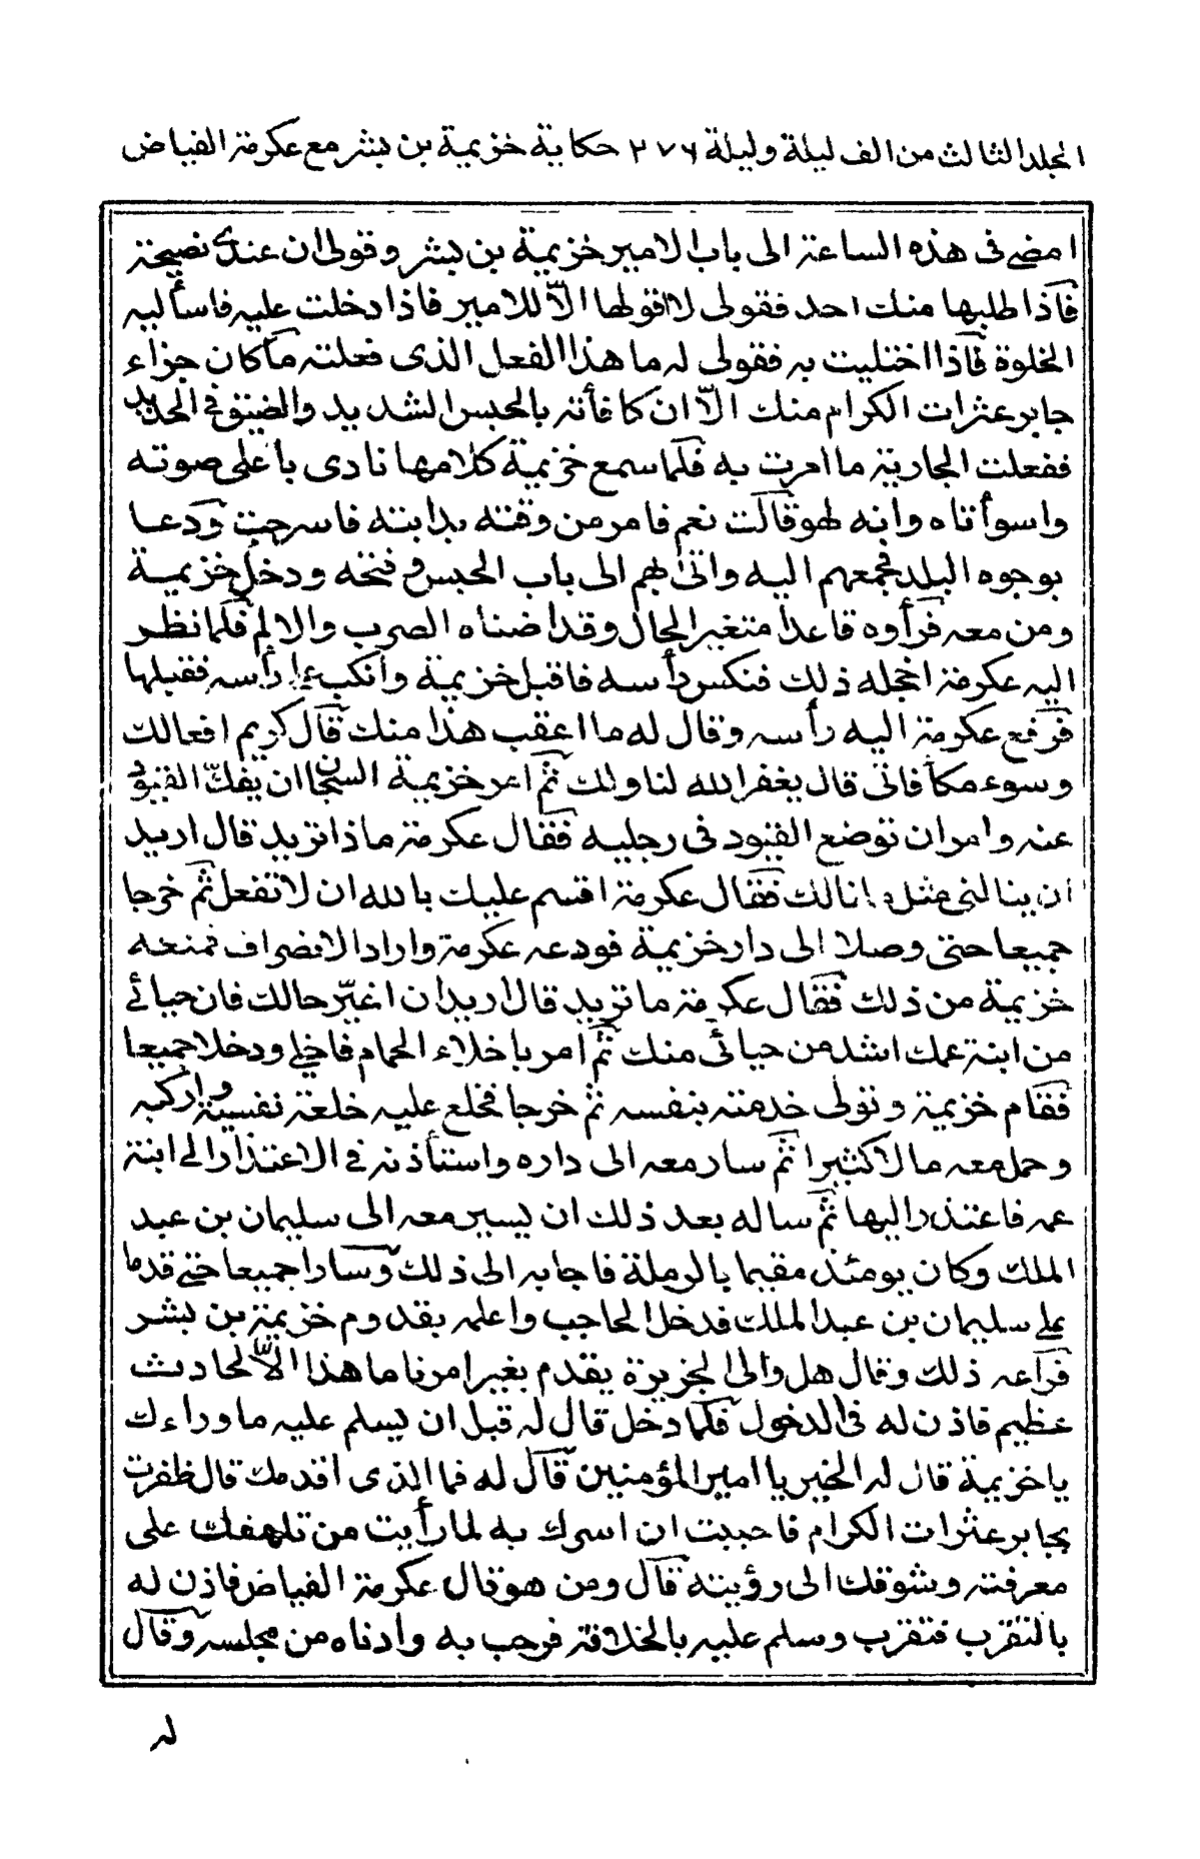 المجلد الثالث من الف ليلة وليلة ٢٧٦ حكاية خزيمة بن بشر مع عكرمة الفياض
امضى فى هذه الساعة الى باب الامير خزيمة بن بشر وقولى ان عندى نصيحة
فاذا طلبها منك احد فقولى لا اقولها الّا للامير فاذا دخلت عليه فاسأليه
الخلوة فاذا اختليت به فقولى له ما هذا الفعل الذى فعلته ماكان جزاء
جابر عثرات الكرام منك الّا ان كافأته بالحبس الشديد والضيق فى الحديد
ففعلت الجارية ما امرت به فلما سمع خزيمة كلامها نادى باعلى صوته
واسوأتاه وانه لهو قالت نعم فامر من وقته بدابته فاسرجت ودعا
بوجوه البلد فجمعهم اليه واتى بهم الى باب الحبس وفتحه ودخل خزيمة
ومن معه فرأوه قاعدا متغير الحال وقد اضناه الضرب والالم فلما نظر
اليه عكرمة اخجله ذلك فنكس رأسه فاقبل خزيمة وانكب على رأسه فقبلها
فرفع عكرمة اليه رأسه وقال له ما اعقب هذا منك قال كريم افعالك
وسوء مكأفاتى قال يغفر الله لنا ولك ثم امر خزيمة السجان ان يفكّ القيود
عنه وامر ان توضع القيود فى رجليه فقال عكرمة ماذا تريد قال اريد
ان ينالنى مثل ما نالك فقال عكرمة اقسم عليك بالله ان لا تفعل ثم خرجا
جميعا حتى وصلا الى دار خزيمة فودعه عكرمة واراد الانصراف فمنعه
خزيمة من ذلك فقال عكرمة ما تريد قال اريد ان اغيّر حالك فان حيائى
من ابنة عمك اشد من حيائى منك ثم امر باخلاء الحمام فاخلى ودخلا جميعا
فقام خزيمة وتولى خدمته بنفسه ثم خرجا فخلع عليه خلعة نفيسة واركبه
وحمل معه مالا كثيرا ثم سار معه الى داره واستأذنه فى الاعتذار الى ابنة
عمه فاعتذر اليها ثم ساله بعد ذلك ان يسير معه الى سليمان بن عبد
الملك وكان يومئذ مقيما بالرملة فاجابه الى ذلك وسارا جميعا حتى قدما
على سليمان بن عبد الملك فدخل الحاجب واعلمه بقدوم خزيمة بن بشر
فراعه ذلك وقال هل والى الجزيرة يقدم بغير امرنا ما هذا الّا لحادث
عظيم فاذن له فى الدخول فلما دخل قال له قبل ان يسلم عليه ما وراءك
يا خزيمة قال له الخير يا امير المؤمنين قال له فما الذى اقدمك قال ظفرت
بجابر عثرات الكرام فاحببت ان اسرك به لما رأيت من تلهفك على
معرفته وشوقك الى رؤيته قال ومن هو قال عكرمة الفياض فاذن له
بالتقرب فتقرب وسلم عليه بالخلافة فرحب به وادناه من مجلسه وقال
له